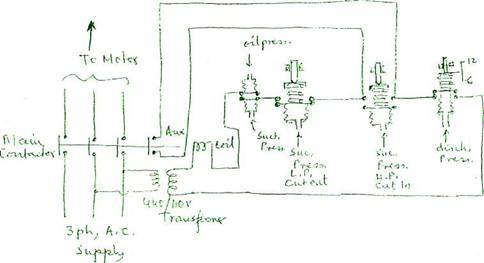 To Motor
Main
Contactor
Aux
3ph, A.C.
Supply
440/110V
Transformer
coil
oil press.
Suct.
Press.
Suc.
Press.
L.P.
Cut out
Suc.
Press.
H.P.
Cut In
12
6
disch.
Press.